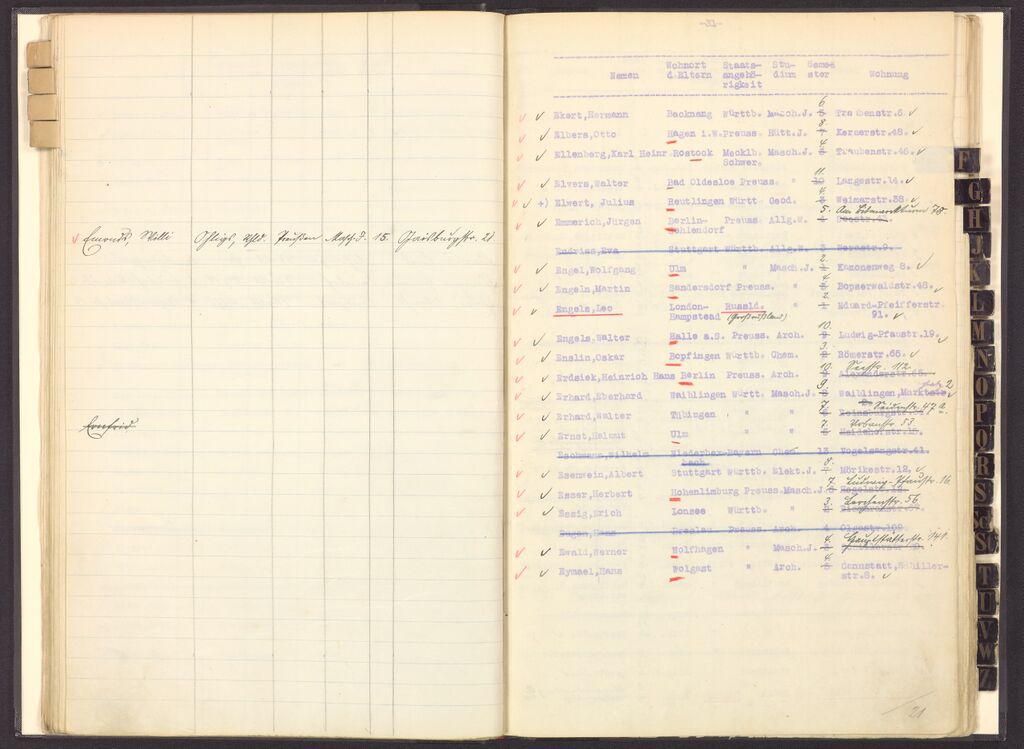 Emonds, Willi Ohligs, Rhld. Preußen Masch.J. 15. Gaisburgstr. 21
Ernfrid
-31-
Namen Wohnort d.Eltern Staats-angehö-rigkeit Stu-dium Semes ster Wohnung
Ekert,Hermann Backnang Württb. Masch.J. 5 6. Traubenstr.6.
Elbers,Otto Hagen i.W.Preuss. Hütt.J. 7 8. Kernerstr.48.
Ellenberg,Karl Heinr Rostock Mecklb. Masch.J. 4. Traubenstr.46.
Schwer.
Elvers,Walter Bad Oldesloe Preuss. " 10 11. Langestr.14.
+) Elwert, Julius Reutlingen Württ Geod. 3 4. Weimarstr.38
Emmerich,Jürgen Berlin- Preuss Allg.W. 5. Am Bismarckturm 78
Zehlendorf
Endriss,Eva Stuttgart Württb. Allg.W. 3 Werastr.9.
Engel,Wolfgang Ulm " Masch.J. 1 2. Kanonenweg 8.
Engeln,Martin Sandersdorf Preuss. " Bopserwaldstr.48.
Engels,Leo London- Russld. " 1 2. Eduard-Pfeifferstr.
Hampstead (Großrußland) 91.
Engels,Walter Halle a.S. Preuss. Arch. 9 10. Ludwig-Pfaustr.19.
Enslin,Oskar Bopfingen Württb. Chem. 2 3. Römerstr.65.
Erdsiek,Heinrich Hans Berlin Preuss. Arch. 9 10. Seestr. 112 Alexanderstr.65.
Erhard,Eberhard Waiblingen Württ. Masch.J. 8 9. Waiblingen,Marktstr. platz 2
Erhard,Walter Tübingen " " 7 Seidenstr. 47 a.
Ernst,Helmut Ulm " " 7. Urbanstr. 53
Eschmann,Wilhelm Niederhax-Bayern Chem. 13 Vogelsangstr.41.
bach
Esenwein,Albert Stuttgart Württb. Elekt.J. 7 8. Mörikestr.12.
Esser,Herbert Hohenlimburg Preuss.Masch.J. 7. Ludwig-Pfaustr. 16
Essig,Erich Lonsee Württb. " 3. Lerchenstr. 56
Eugen,Hans Breslau Preuss. Arch. 4 Olgastr.109
Ewald,Werner Wolfhagen " Masch.J. 4. Hauptstätterstr. 141.
Eymael,Hans Wolgast " Arch. 6. Cannstatt,Schiller-
str.8.
21
F
G
H
J
K
L
M
N
O
P
Q
R
S
Sch
St
T
U
V
W
Z